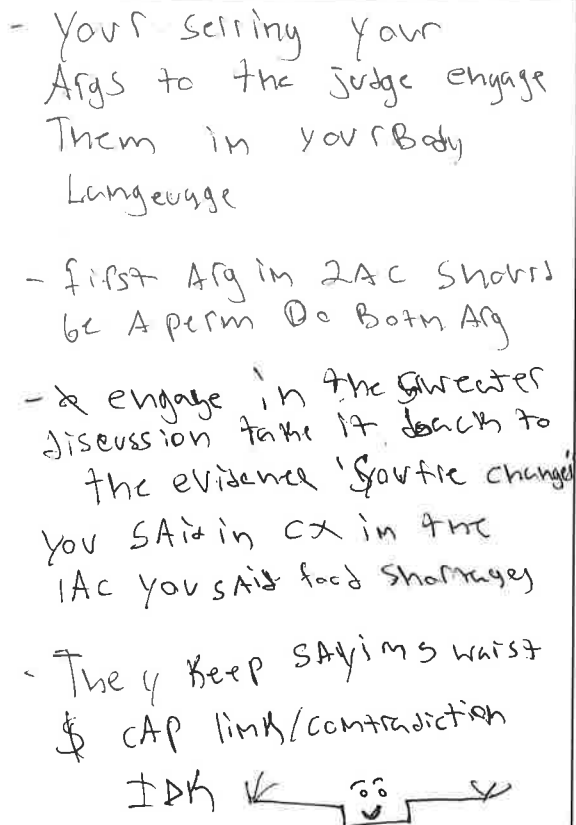 - Your selling your
Args to the judge engage
Them in your Body
Langeuage
- first Arg in 2AC should
be A perm Do Both Arg
- engage in the
discussion take it back to
the evidence
you SAid in CX in the
1AC you sAid food Shortages
- They Keep sAying waist
$ cAP link/contradiction
IDK